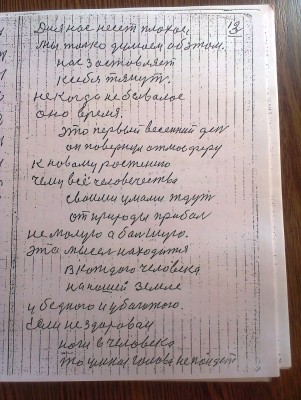 13
Для нас несет плохое,
мы только думаем об этом.
нас заставляет
к себе тянут.
некогда небывалое
оно время.
это первый весенний ден
он повернул атмосферу
к новому ростению
чему всё человечества
своими умами ждут
от природы прибал
не малую а балшую.
эта мысел находится
в каждого человека
на нашей земле
у бедного и у багатого.
если не здороваи
ноги в человека
то умная голова не пойдет